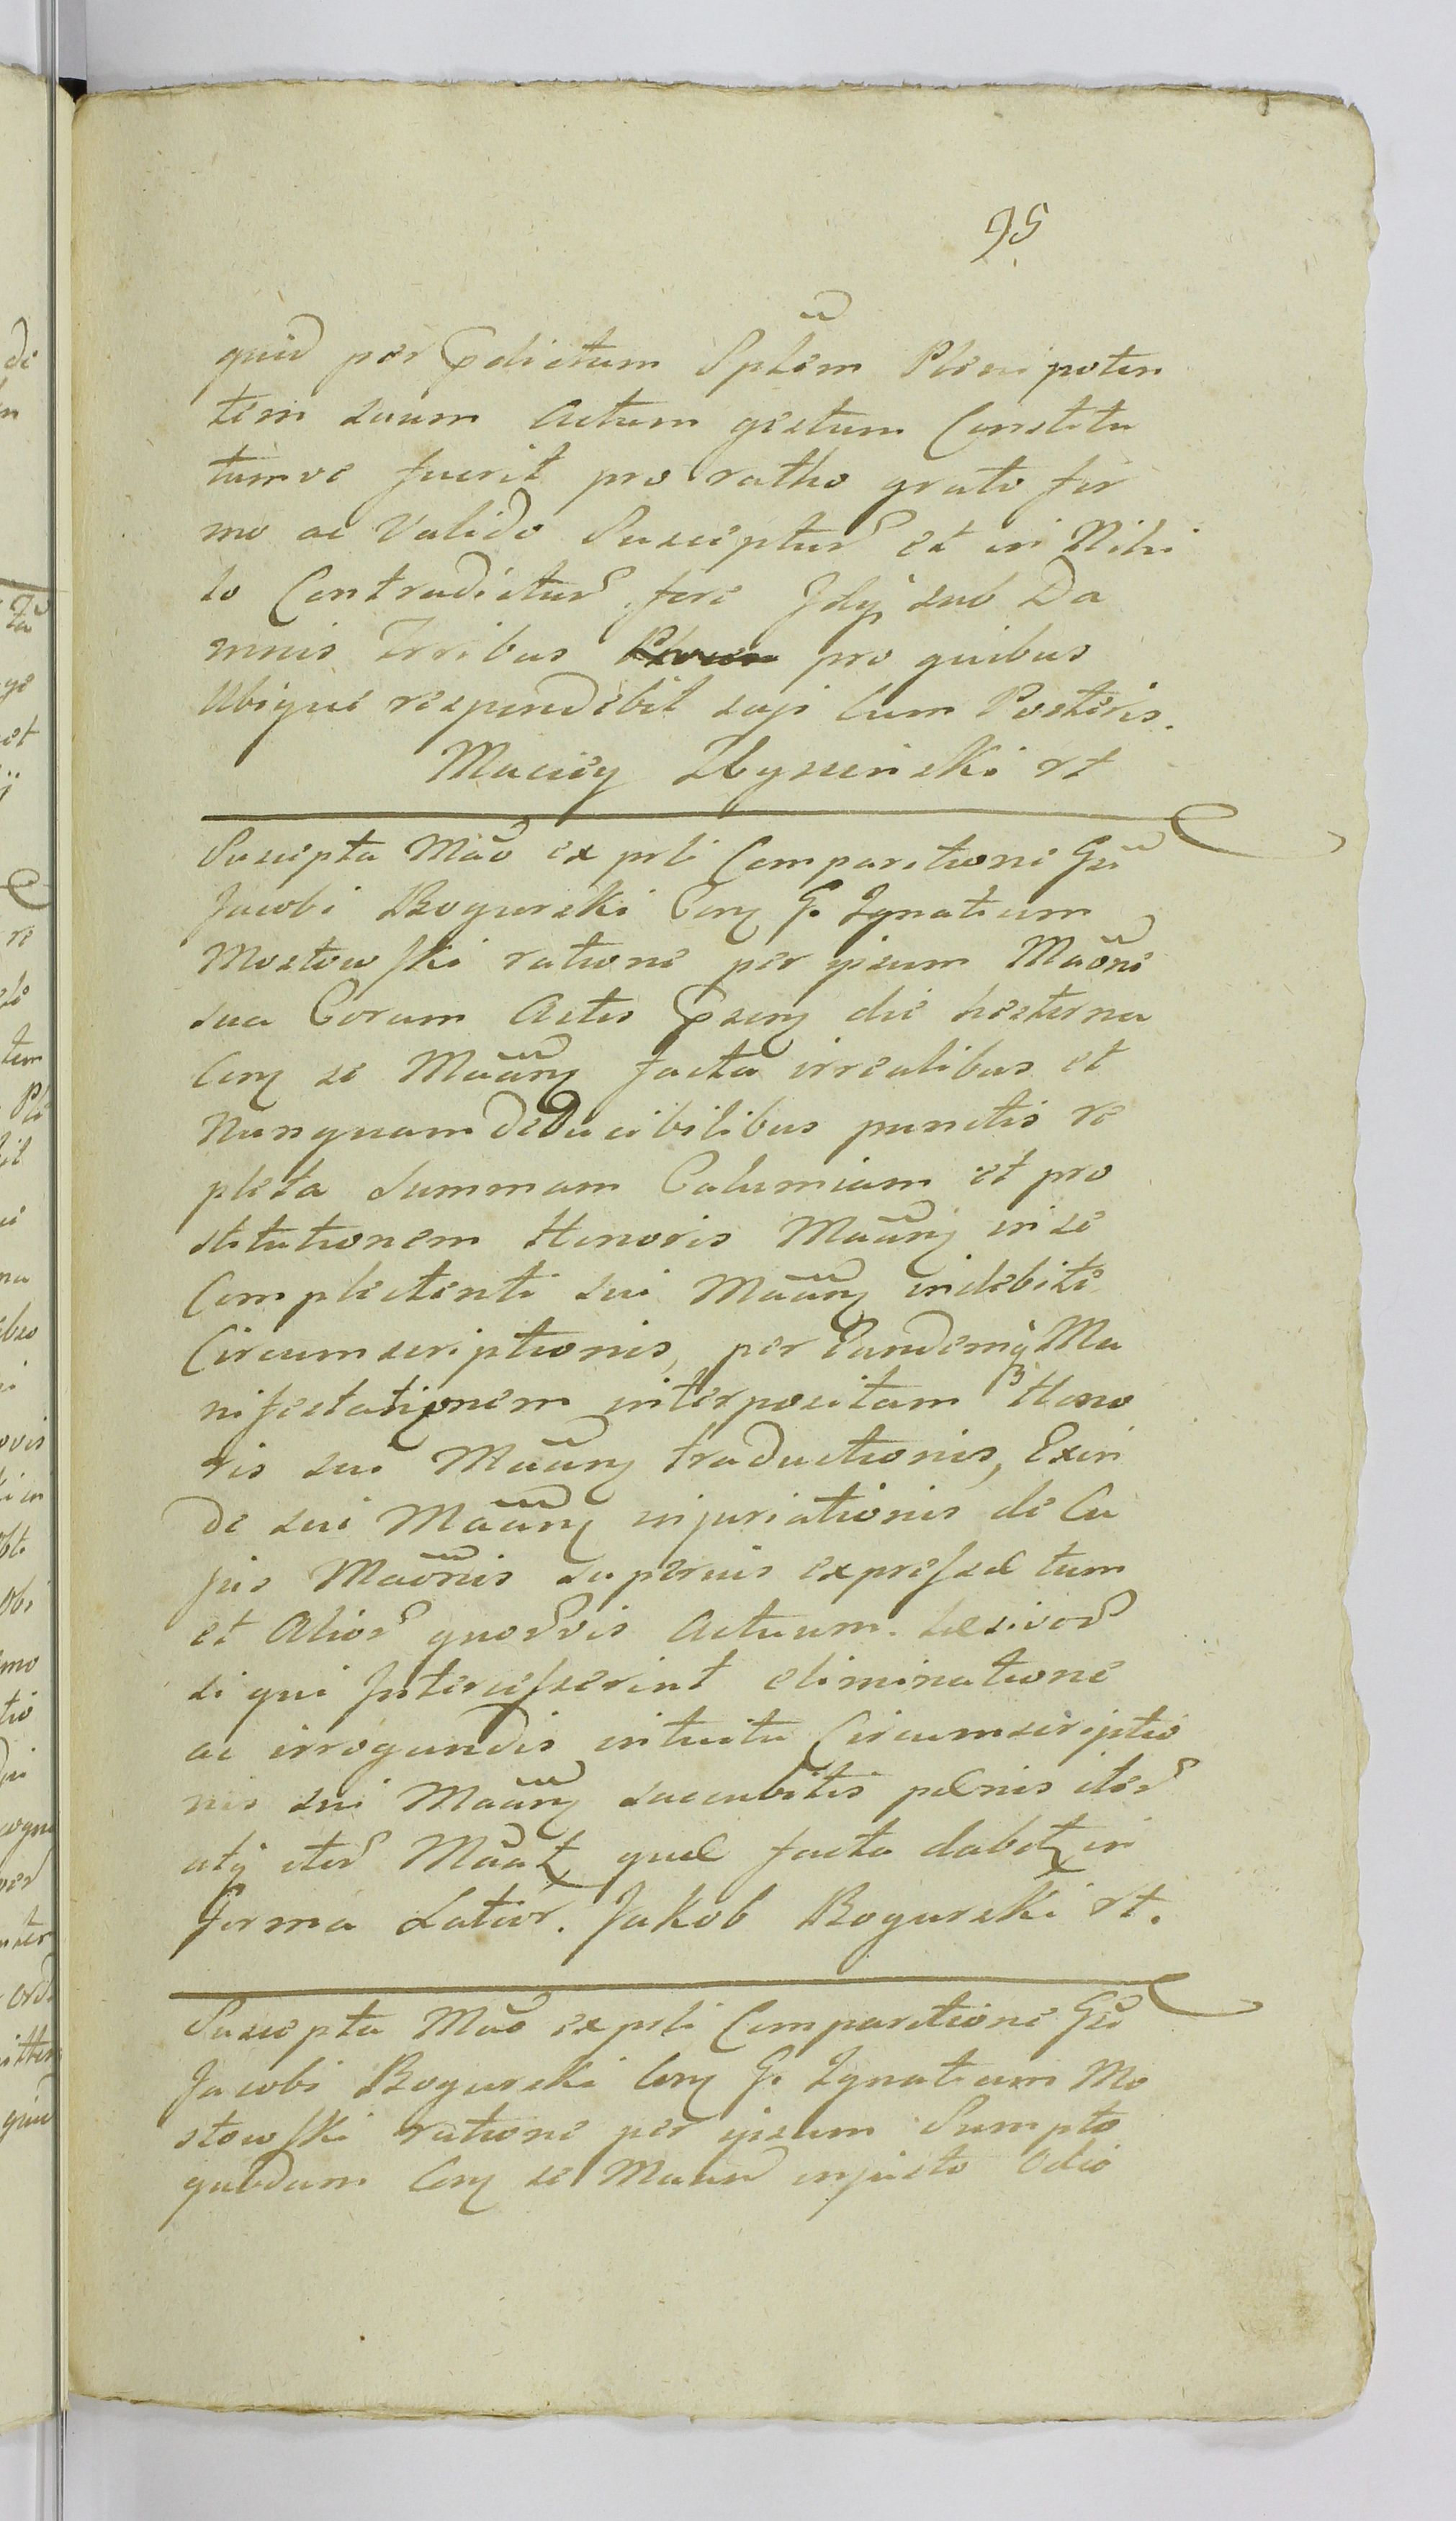 95
quid per Edictum Spłem Plenipoten
tem suum Actum gestum Constitu
tumve fuerit pro ratho grato fir
mo ac Valido Suscepturꝰ et in Nihi
lo Contradicturꝰ fore Idqꝫ sub Da
mnis Trribus pro quibus
Ubique respondebit saji cum Posteris.
Maciey Zbysinski rt
Suscepta Mãõ ex prli Comparitione Gsi
Jacobi Bogurski Con̄ G. Ignatium
Mostowski ratione per ipsum Mãõne
sua Coram Actis die hesterna
Con̄ se Mããn̄ facta irrealibus et
Nunquam deducibilibus punctis re
pleta Summam Calumiam et pro
stitutionem Honoris Mããn̄ in se
Complectenti sui Mããn̄ indebite
Circumscriptionis, per Eandemqꝫ Ma
nifestationem interpositam Hono
ris sui Mããn̄ traductionis, Exin
de sui Mããn̄ injuriationis de Cu
jus Mãõnis superius expressæ tum
et Aliorꝰ quorꝰvis Actuum læsivorꝰ
si qui Intercesserint eliminatione
ac irrogandis intuitu Circumscriptio
nis sui Mããn̄ succubitis pænis iterꝰ
atqꝫ iterꝰ Mããt quæ facta dabit in
forma Latior. Jakob Bogurski rt.
Suscepta Mãõ ex prli Comparitione Gsi
Jacobi Bogurski Con̄ G. Ignatium Mo
stowski ratione per ipsum Sumpto
quodam Con̄ se Mããn̄ injusto Odio